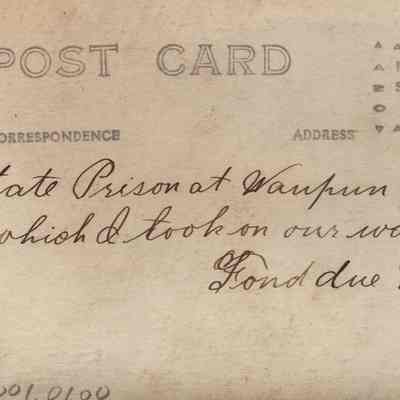 POST CARD
ORRESPONDENCE ADDRESS
tate Prison at Waupun
which I took on our wa
Fond due
001.0100